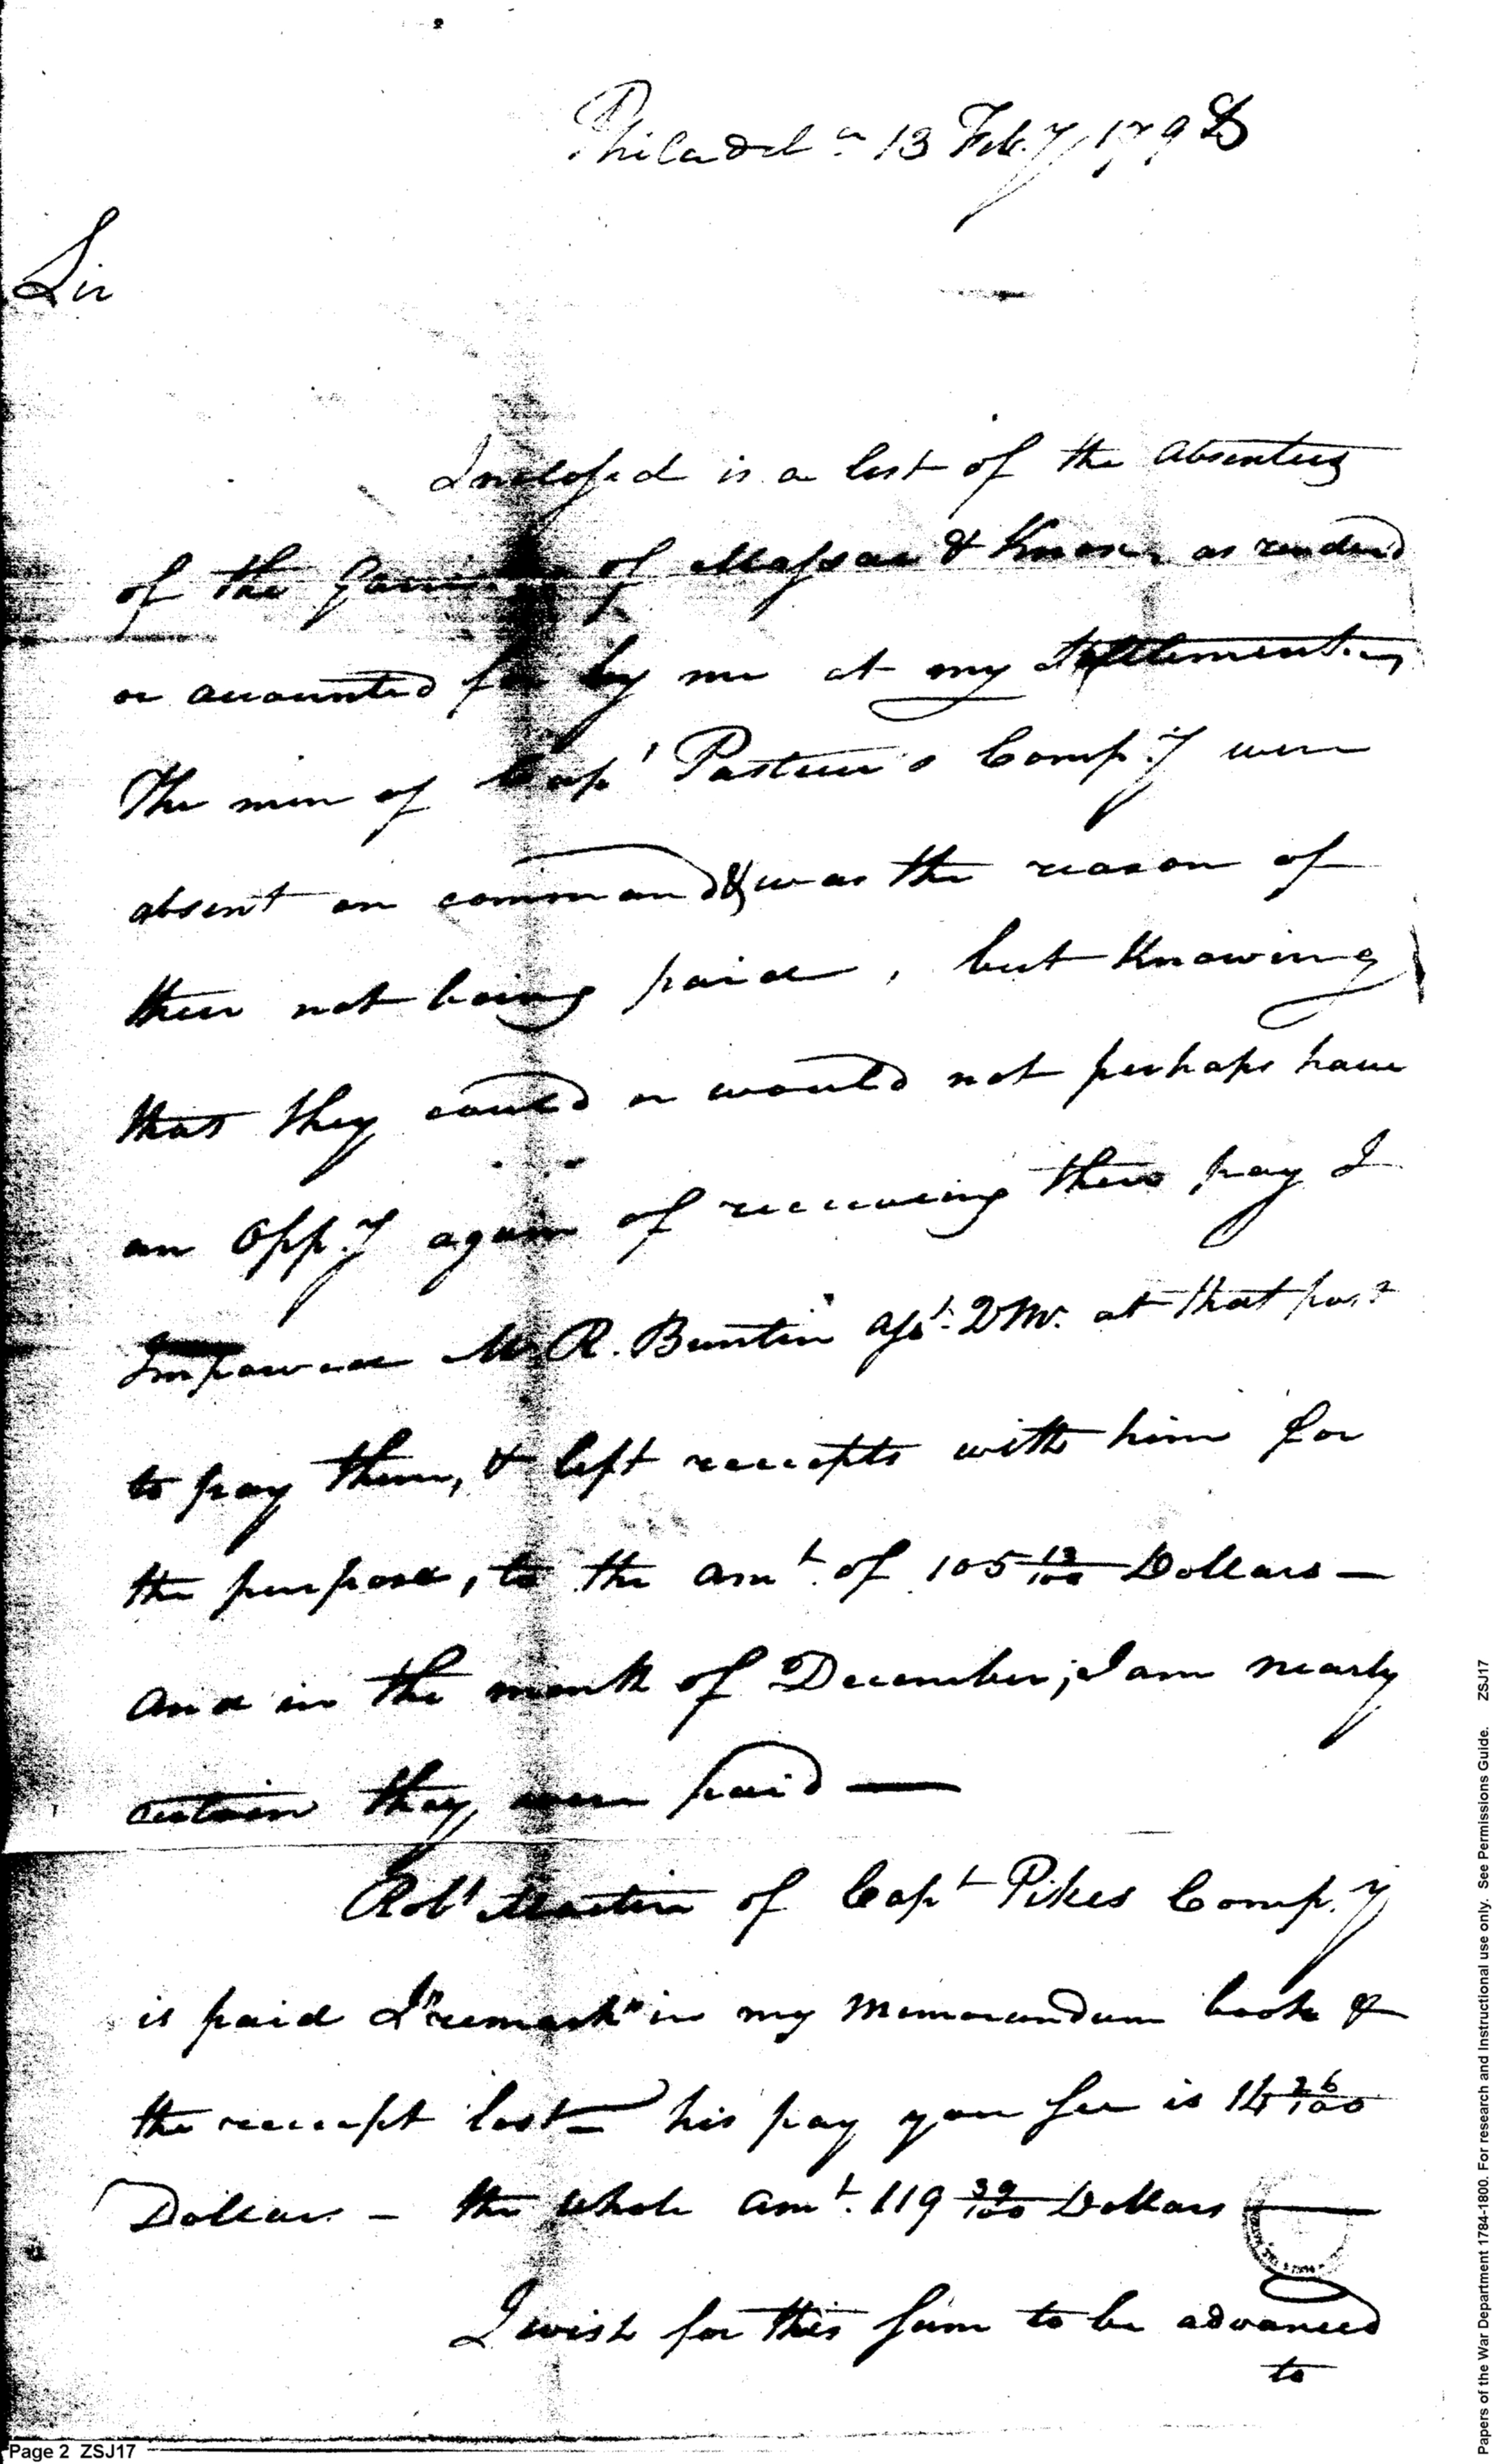 Philadel.a 13 Feb.y 1798
Sir
Inclosed is a list of the absentees
of the Garrison of Massac & Knox, as renderd
or accounted for by me at my settlement.
The men of Capt Pasteur's Comp.y were
absent on command & was the reason of
their not being paid, but Knowing
that they could or would not perhaps have
an Opp.y again of receiving their pay I
Impowered Mr R. Buntin Agt. QM. at that post
to pay them, & left receipts with him for
the purpose, to the amt. of 105 13/100 Dollars —
and in the month of December; I am nearly
certain they were paid —
Robt Martin of Capt Pikes Comp.y
is paid I "remark" in my memorandum book &
the receipt lost — his pay you see is 14 26/100
Dollars — the whole amt. 119 39/100 Dollars —
I wish for this sum to be advanced
to
Page 2 ZSJ17
Papers of the War Department 1784-1800. For research and Instructional use only. See Permissions Guide. ZSJ17